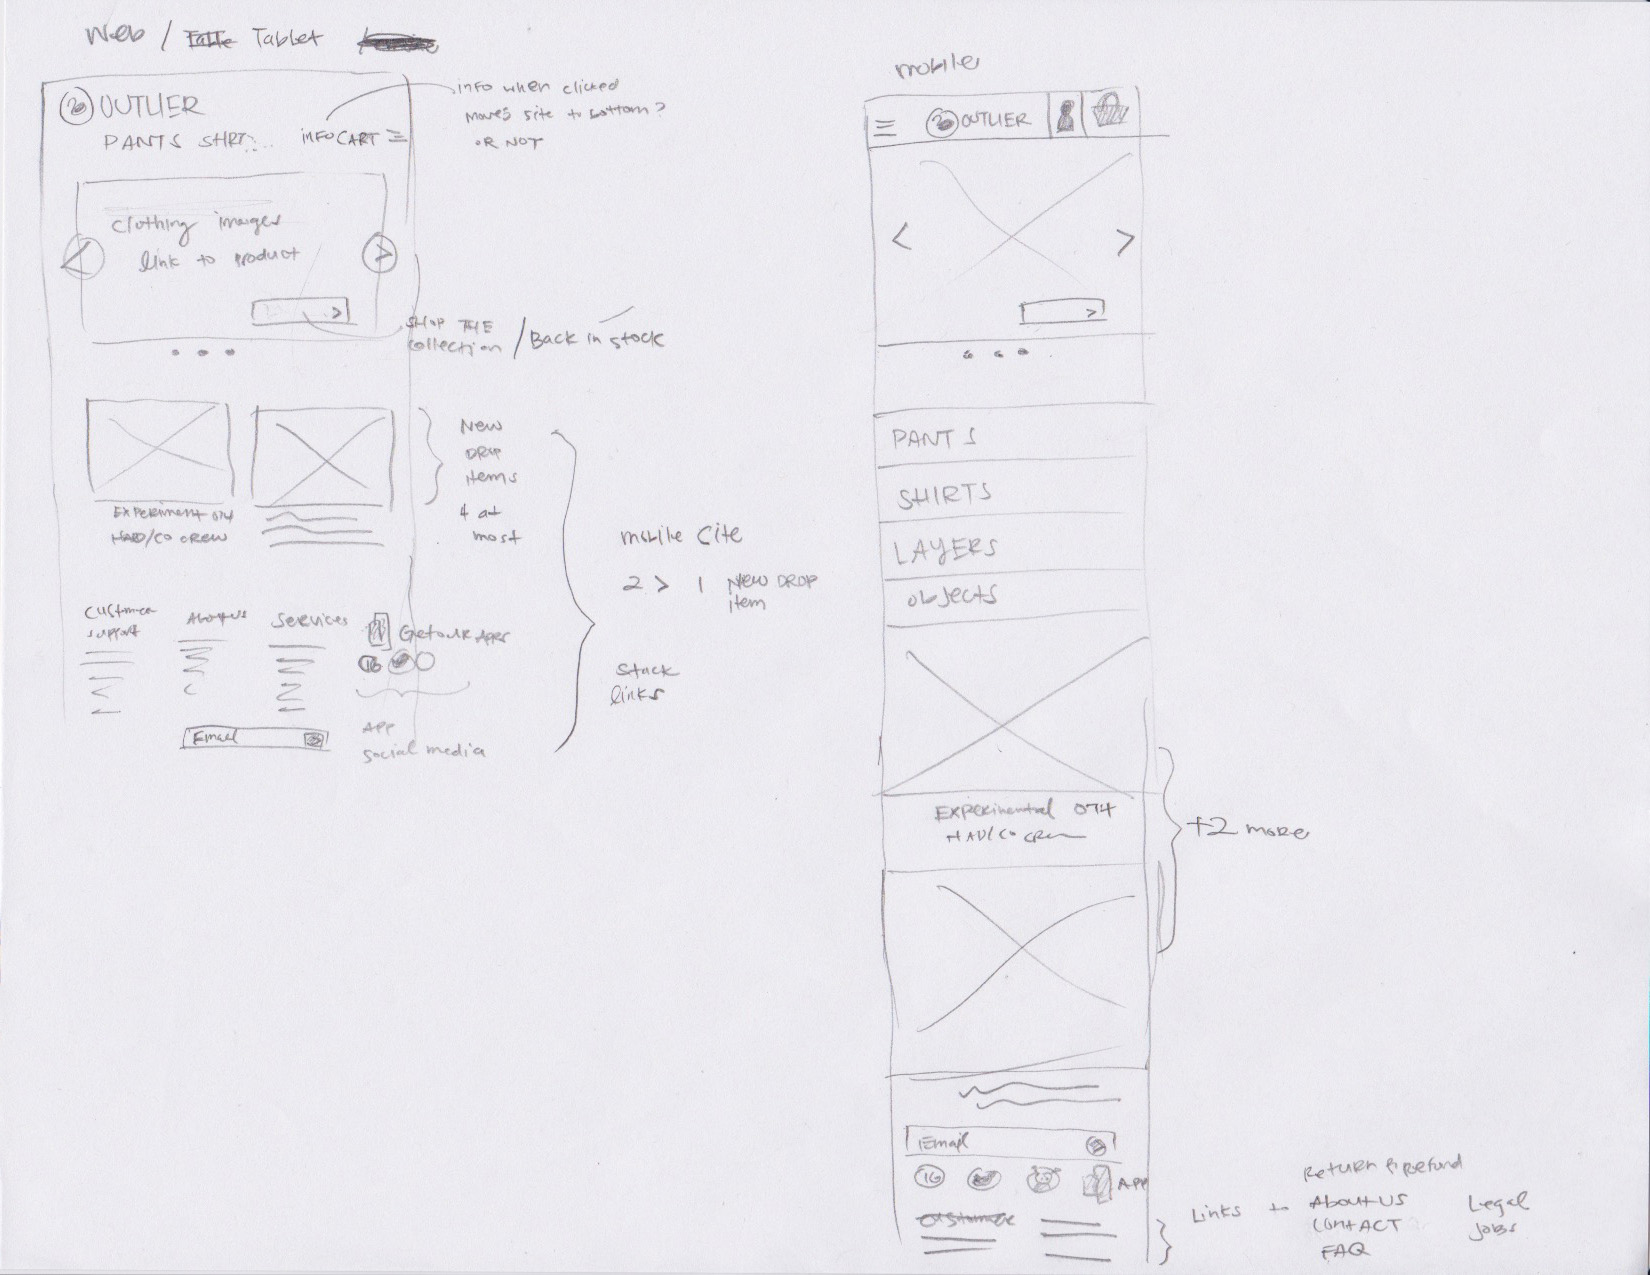 Web / Tablet
OUTLIER
PANTS SHRT...
INFO CART
info when clicked
moves site to bottom?
OR NOT
clothing images
link to product
SHOP THE
collection / Back in stock
New
DROP
items
4 at
most
EXPERIMENT 074
HARD/CO CREW
mobile Cite
2 > 1 New DROP
item
Stack
links
Customer
support
About us
Services
Get our Apps
IG
Email
APP
social media
mobile
OUTLIER
PANTS
SHIRTS
LAYERS
objects
EXPerimental 074
HARD/CO CREW
+2 more
Email
IG
APP
customer
Links to
Return & Refund
About US
CONTACT
FAQ
Legal
Jobs